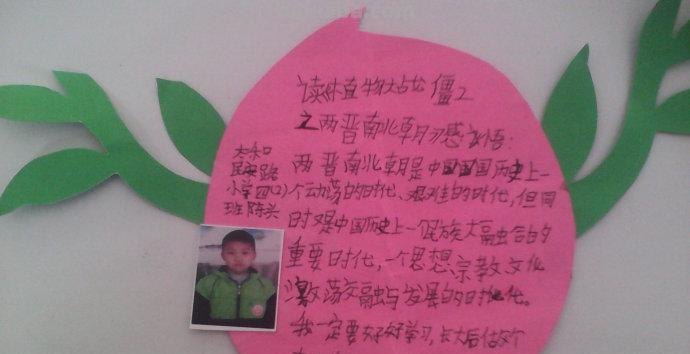 读植物大战僵
之两晋南北朝感悟：
民安路
小学四(2)
班陈
两晋南北朝是中国国历史上一
个动荡的时代、艰难的时代，但同
时又是中国历史上一民族大融合的
重要时代，一个思想宗教文化
激荡交融与发展的时代。
我一定要好好学习，长大后做个